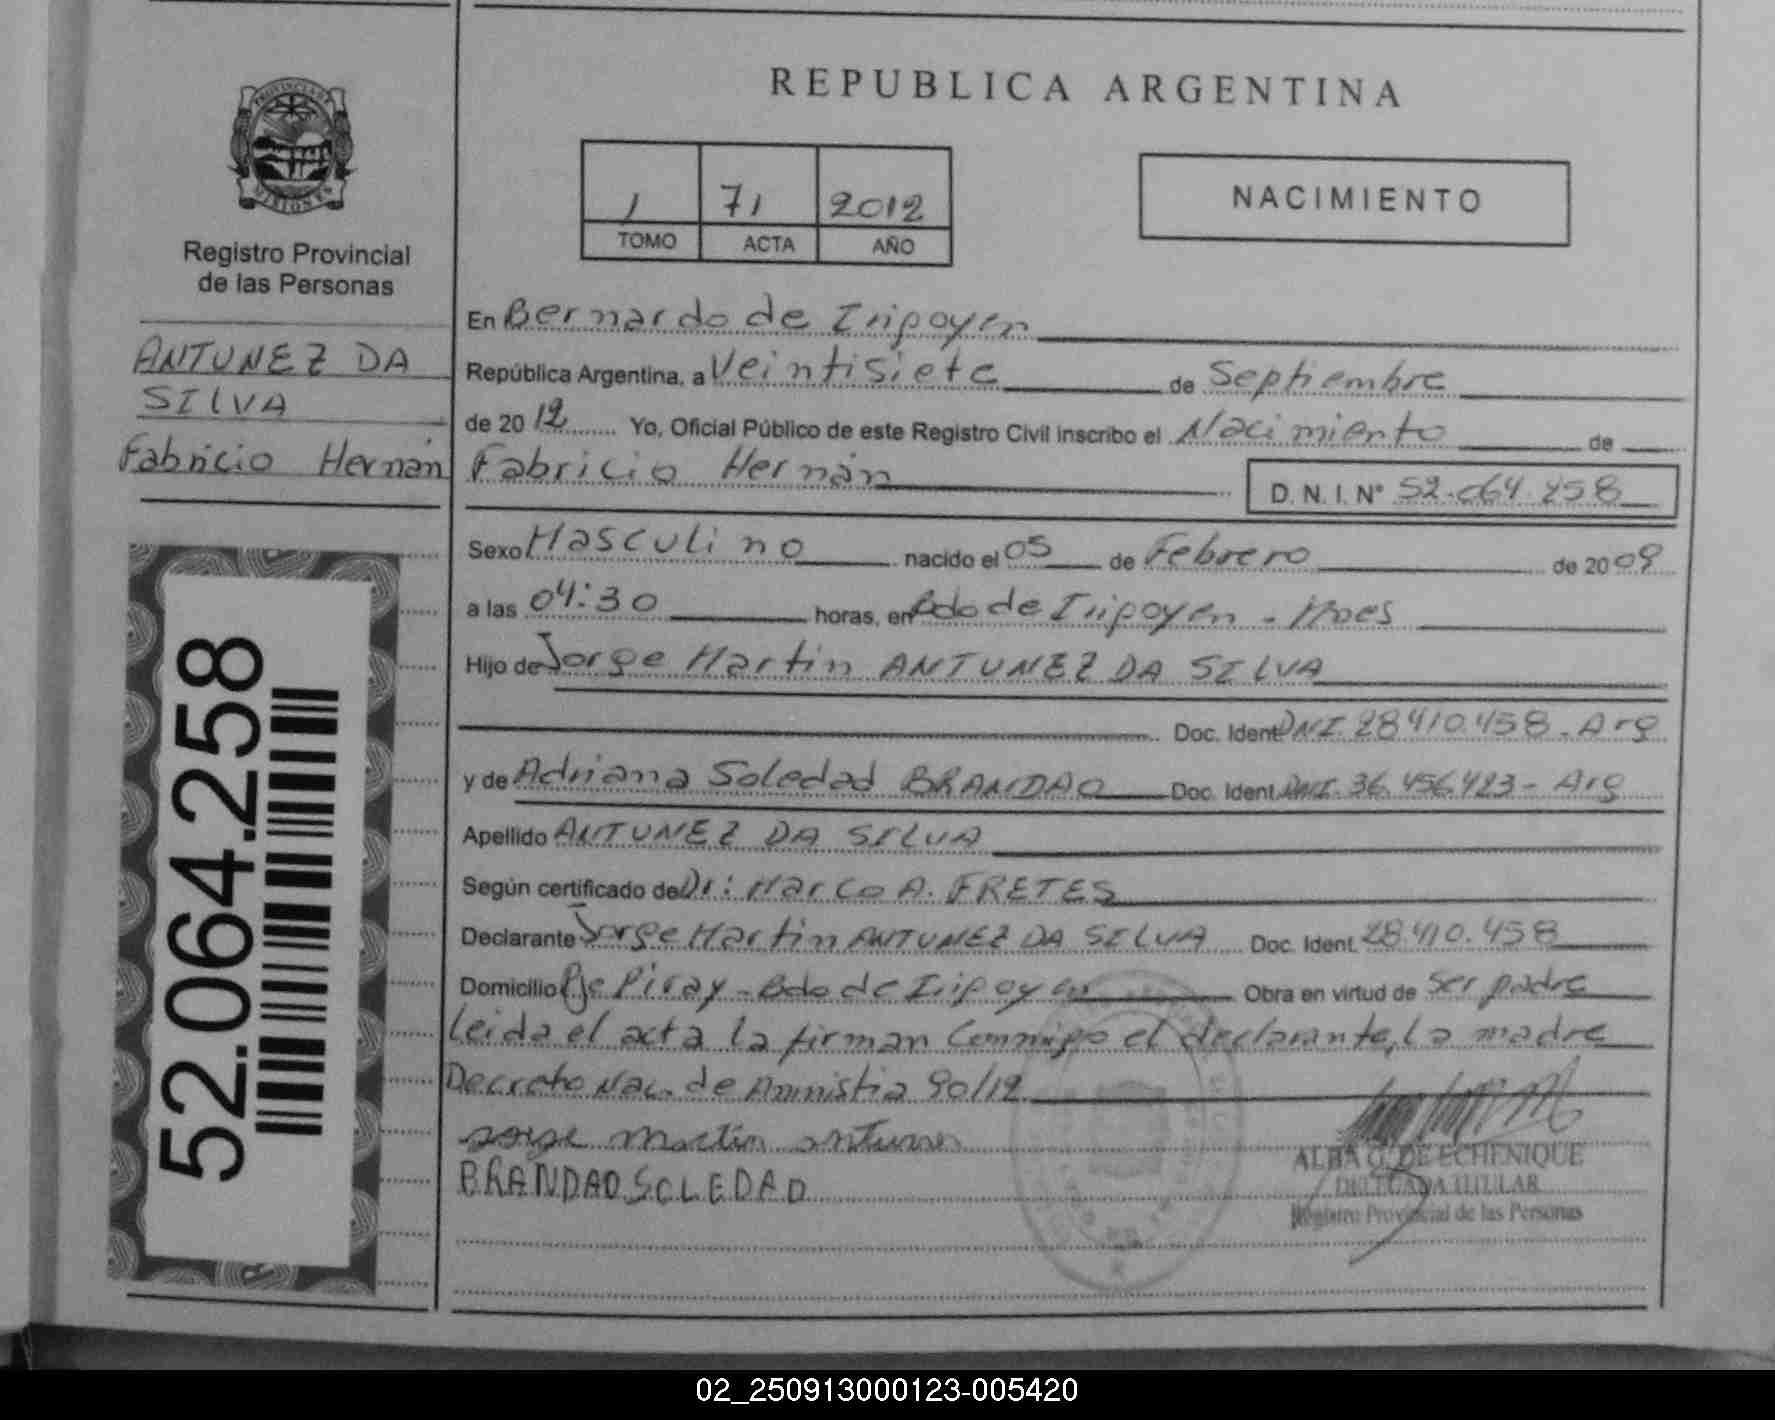 REPUBLICA ARGENTINA
PROVINCIA DE
MISIONES
Registro Provincial
de las Personas
ANTUNEZ DA
SILVA
Fabricio Hernán
52.064.258
1 71 2012
TOMO ACTA AÑO
NACIMIENTO
En Bernardo de Irigoyen
República Argentina, a Veintisiete de Septiembre
de 2012 Yo, Oficial Público de este Registro Civil inscribo el Nacimiento de
Fabricio Hernán D. N. I. Nº 52.064.258
Sexo Masculino nacido el 05 de Febrero de 2009
a las 04:30 horas, en Bdo de Irigoyen - Mnes
Hijo de Jorge Martin ANTUNEZ DA SILVA
Doc. Ident. DNI. 28.410.458 - Arg
y de Adriana Soledad BRANDAO Doc. Ident. DNI. 36.456.423 - Arg
Apellido ANTUNEZ DA SILVA
Según certificado de Dr: Marco A. FRETES
Declarante Jorge Martin ANTUNEZ DA SILVA Doc. Ident. 28.410.458
Domicilio Pje Piray - Bdo de Irigoyen Obra en virtud de ser padre
Leida el acta la firman Conmigo el declarante, la madre
Decreto Nac. de Amnistia 90/12
Jorge Martin Antunes
BRANDAO SOLEDAD
ALBA G. DE ECHENIQUE
DELEGADA TITULAR
Registro Provincial de las Personas
02_250913000123-005420